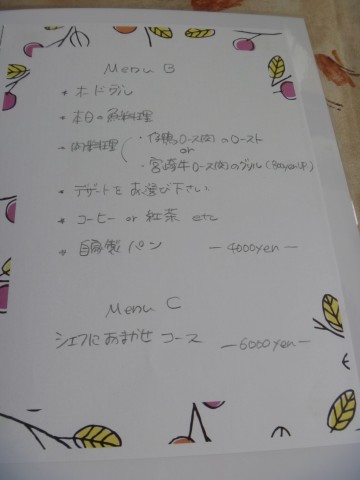 Menu B
* オードブル
* 本日の魚料理
* 肉料理 ・仔鴨ロース(肉)のロースト
or
・宮崎牛ロース(肉)のグリル (800yenUP)
* デザートをお選び下さい
* コーヒー or 紅茶 etc
* 自家製パン ー4000yenー
Menu C
シェフにおまかせコース ー6000yenー